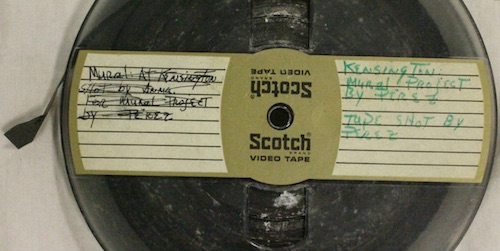 Mural At Kensington
SHOT by Anna
FOR MURAL PROJECT
by PEREZ
VIDEO TAPE
BRAND
Scotch
Scotch
BRAND
VIDEO TAPE
KENSINGTON
MURAL PROJECT
BY PEREZ
TUDE SHOT BY
PEREZ